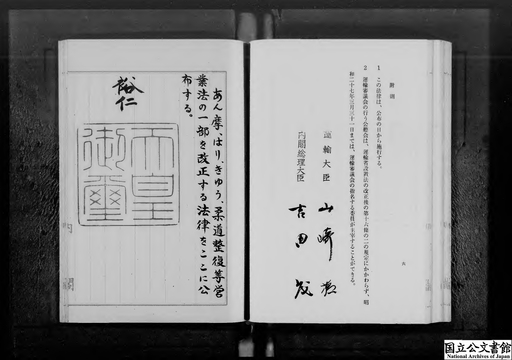 附則
1 この法律は、公布の日から施行する。
2 運輸審議会の行う公聴会は、運輸省設置法の改正後の第十六條の二の規定にかかわらず、昭
和二十七年三月三十一日までは、運輸審議会の指名する委員が主宰することができる。
運輸大臣 山﨑猛
内閣総理大臣 吉田茂
あん摩、はり、きゆう、柔道整復等営
業法の一部を改正する法律をここに公
布する。
裕仁
天皇
御璽
国立公文書館
National Archives of Japan